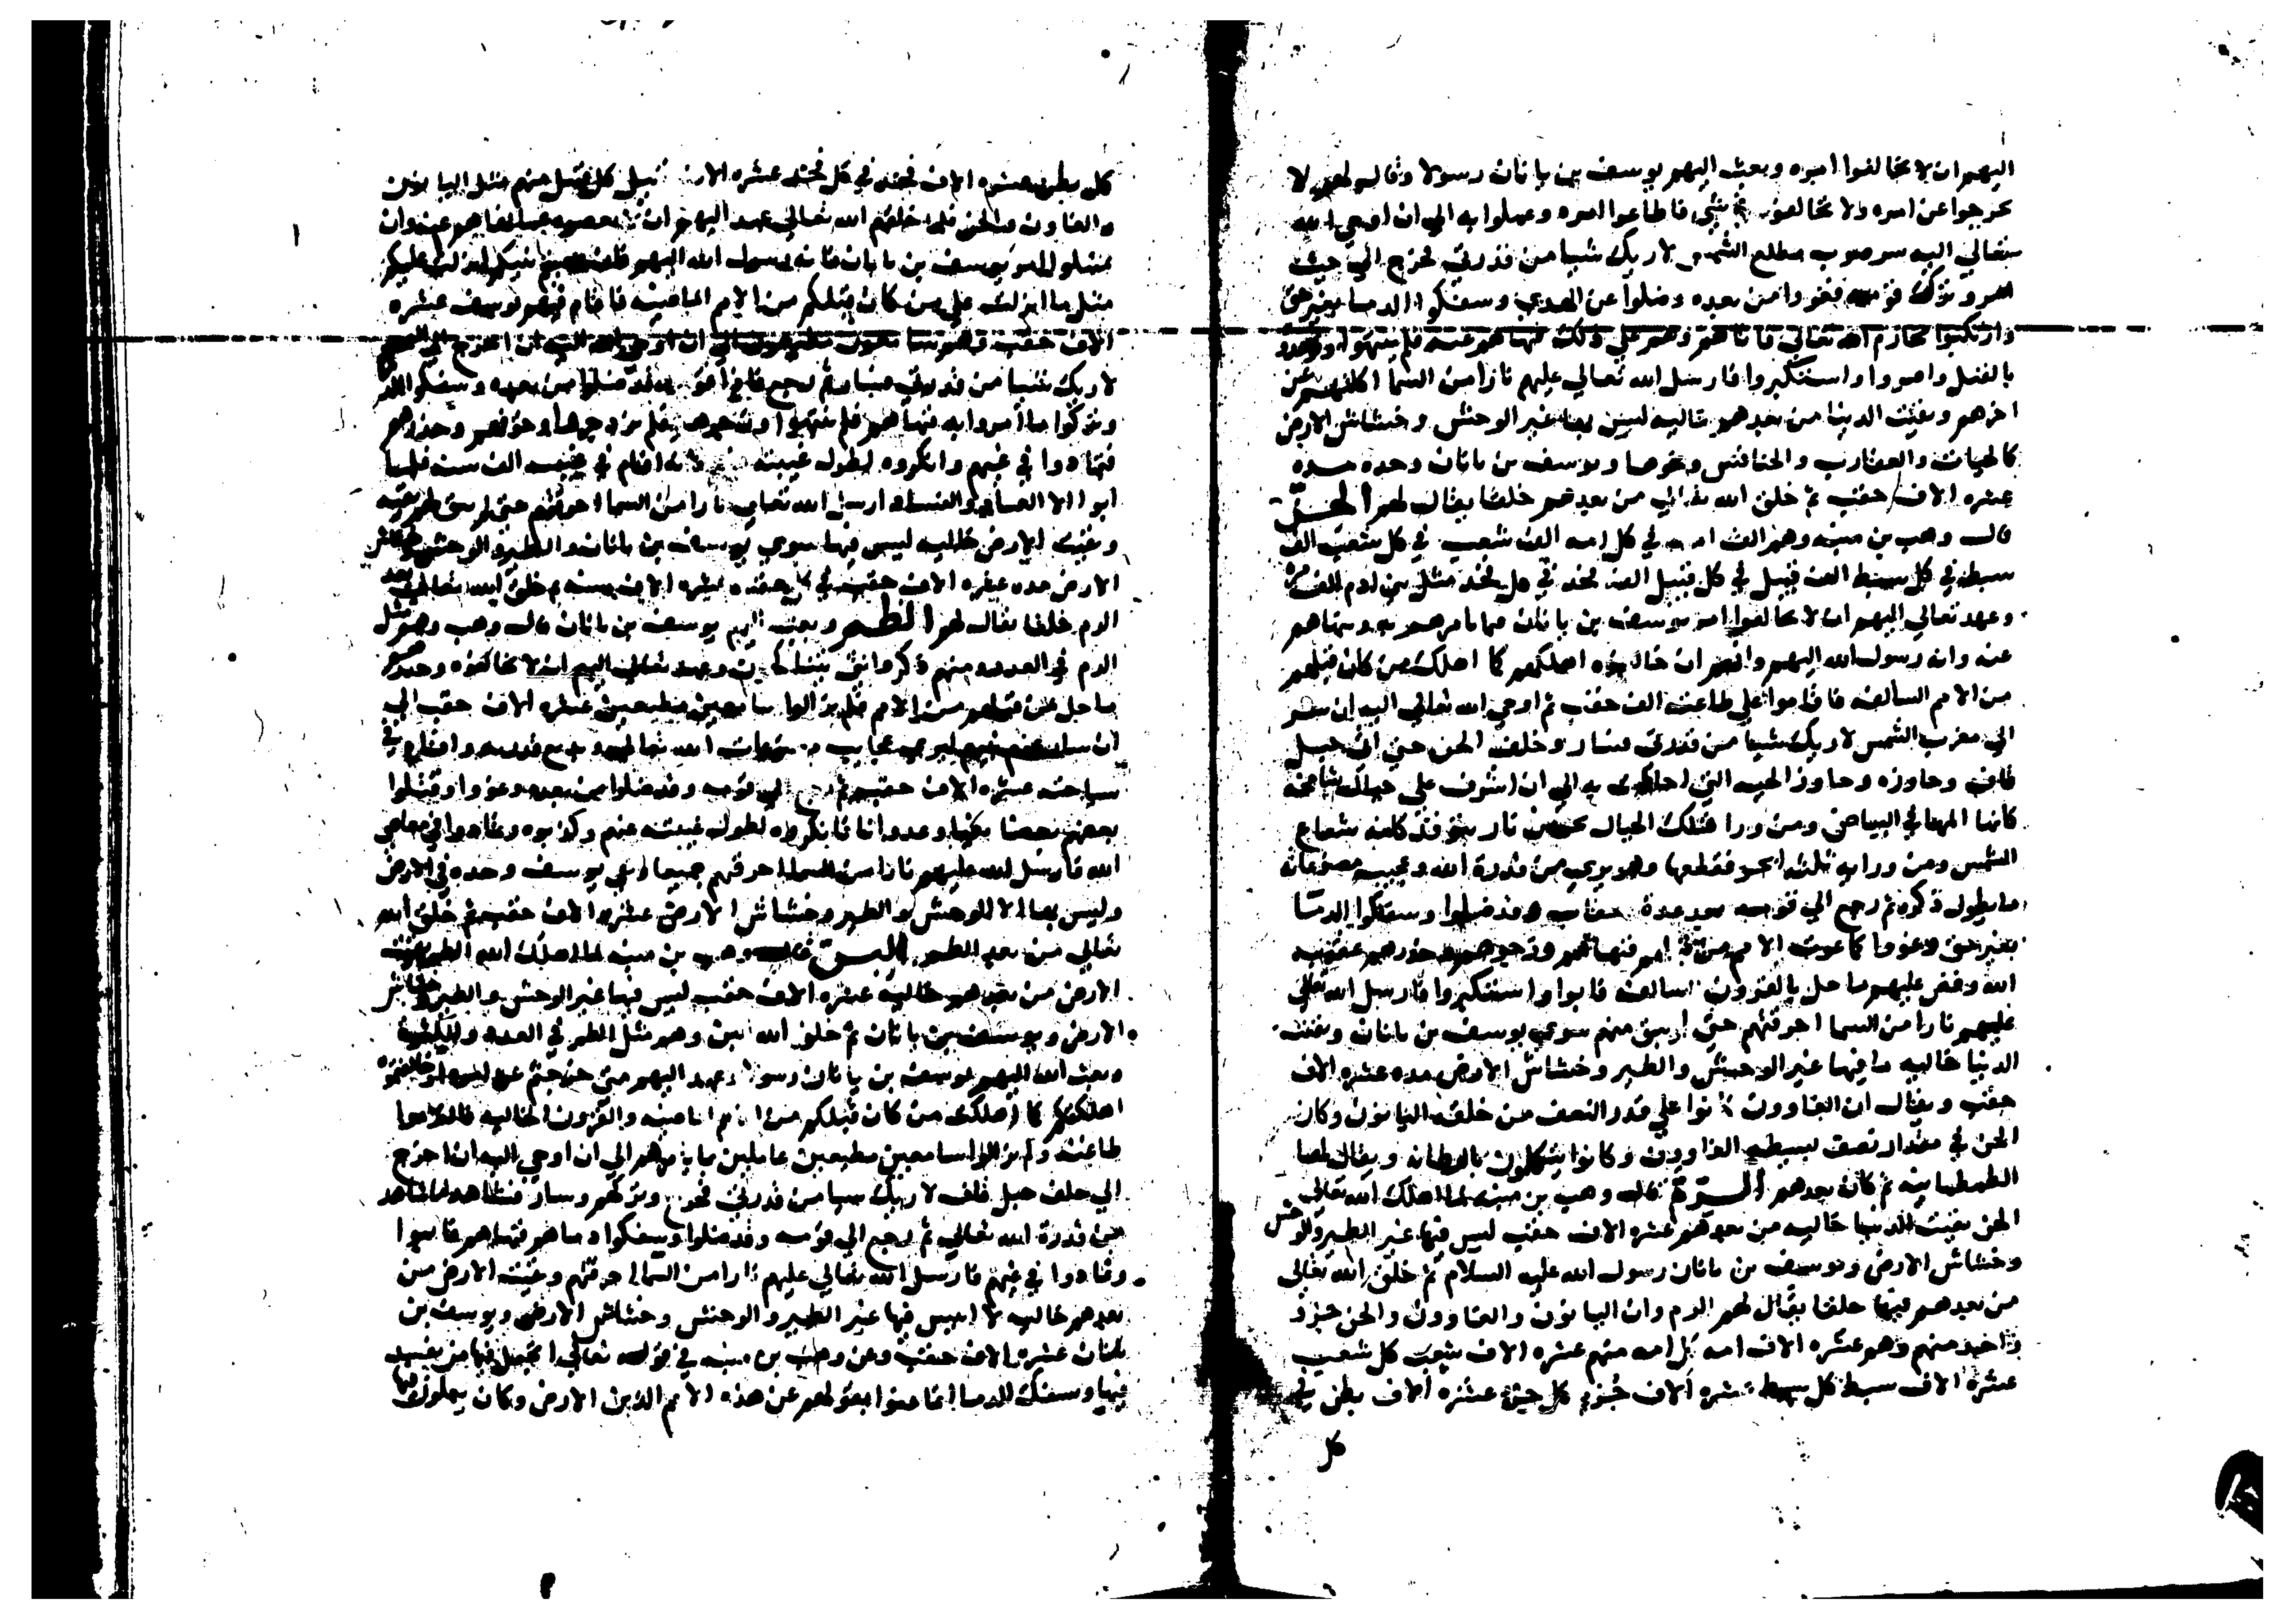 اليهم ان لا يخالفوا امره وبعث اليهم يوسف بن يانان رسولا وقال لهم لا
تخرجوا عن امره ولا تخالفوه في شي فاطاعوا امره وعملوا به الي ان اوحي الله
تعالي اليه سر صوب مطلع الشمس لاريك شيا من قدرتي فخرج الي حيث
امر وترك قومه فغووا من بعده وضلوا عن الهدي وسفكوا الدما بغير حق
وارتكبوا محارم الله تعالي فاتاهم وهم علي ذلك فنهاهم عنه فلم ينتهوا
بالقتل واصروا واستكبروا فارسل الله تعالي عليهم نارا من السما اكلتهم عن
اخرهم وبقيت الدنيا من بعدهم خاليه ليس بها غير الوحش وخشاش الارض
كالحيات والعقارب والخنافس ونحوها ويوسف بن يانان وحده مده
عشره الاف حقب ثم خلق الله تعالي من بعدهم خلقا يقال لهم الحن
قال وهب بن منبه وهم الف امه في كل امه الف شعب في كل شعب الف
سبط في كل سبط الف قبيل في كل قبيل الف فخد في كل فخد مثل بني ادم الف مره
وعهد تعالي اليهم ان لا يخالفوا امر يوسف بن يانان فيما يامرهم به وينهاهم
عنه وانه رسول الله اليهم وانهم ان خالفوه اهلكهم كما اهلك من كان قبلهم
من الامم السالفه فاقاموا علي طاعته الف حقب ثم اوحي الله تعالي اليه ان سر
الي مغرب الشمس لاريك شيا من قدرتي فسار وخلف الحن حتي اتي جبل
قاف وجاوزه وجاوز الحيه التي به الي ان اشرف علي جبال شامخه
كانها المها في البياض ومن ورا تلك الجبال نار يتوقد كانه شعاع
الشمس ومن ورايه ثلثه ابحر فقطعها وهو يري من قدرة الله وعجيب مصنوعاته
ما يطول ذكره ثم رجع الي قومه بعد عدة احقاب وقد ضلوا وسفكوا الدما
بغير حق وغووا كما غوت الامم من قبلهم فنهاهم وزجرهم وحذرهم عقوبه
الله وقص عليهم ما حل بالقرون السالفه فابوا واستكبروا فارسل الله تعالي
عليهم نارا من السما احرقتهم حتي لم يبق منهم سوي يوسف بن يانان وبقيت
الدنيا خاليه ما فيها غير الوحش والطير وخشاش الارض مده عشره الاف
حقب ويقال ان الغاوون كانوا علي قدر النصف من خلقه اليانون وكان
الحن في مقدار نصف بسيطه الغاوون وكانوا يتكلمون بالرطانه ويقال لها
الطمطمانيه ثم كان بعدهم الدم قال وهب بن منبه لما اهلك الله تعالي
الحن بقيت الدنيا خاليه من بعدهم عشره الاف حقب ليس فيها غير الطير والوحش
وخشاش الارض ويوسف بن يانان رسول الله عليه السلام ثم خلق الله تعالي
من بعدهم فيها خلقا يقال لهم الدم وان اليانون والغاوون والحن جزؤ
واحد منهم وهم عشره الاف امه كل امه منهم عشره الاف شعب كل شعب
عشره الاف سبط كل سبط عشره الاف جزء كل جزء عشره الاف بطن في
كل
كل بطن عشره الاف فخد في كل فخد عشره الاف قبيل كل قبيل منهم مثل اليانون
والغاوون والحن فلما خلقهم الله تعالي عهد اليهم ان لا يعصوه عما نهاهم عنه وان
يمتثلوا امر يوسف بن يانان فانه رسول الله اليهم انزلت عليكم
مثل ما انزلت علي من كان قبلكم من الامم الماضيه فاقام فيهم يوسف عشره
الاف حقب وهم سامعون مطيعون الي ان اوحي الله اليه ان اخرج الي
لاريك شيا من قدرتي فسار ثم رجع وقد ضلوا من بعده وسفكوا الدما
وتركوا ما أمروا به فنهاهم فلم ينتهوا وخوفهم وحذرهم
فتمادوا في غيهم وانكروه لطول غيبته اقام في غيبته الف سنه فلما
ابوا الا العصيان والفساد ارسل الله تعالي نارا من السما احرقتهم حتي لم يبق لهم بقيه
وبقيت الارض خاليه ليس فيها سوي يوسف بن يانان والطير والوحش وخشاش
الارض مده عشره الاف حقب في كل حقب عشره الاف سنه ثم خلق الله تعالي بعد
الدم خلقا يقال لهم الطم وبعث اليهم يوسف بن يانان قال وهب وهم مثل
الدم في العدد ومنهم ذكر وانثي وعهد تعالي اليهم ان لا يخالفوه وحذرهم
ما حل بمن قبلهم من الامم فلم يزالوا سامعين مطيعين عشره الاف حقب الي
ان سار عنهم ليري عجايب مصنوعات الله تعالي وبديع قدرته واقام في
سياحته عشره الاف حقب ثم رجع الي قومه وقد ضلوا من بعده وغووا وقتلوا
بعضهم بعضا بغيا وعدوانا فانكروه لطول غيبته عنهم وكذبوه وتمادوا في معاصي
الله فارسل الله عليهم نارا من السما احرقتهم جميعا وبقي يوسف وحده في الارض
وليس بها الا الوحش والطير وخشاش الارض عشره الاف حقب ثم خلق الله
تعالي من بعد الطم البن قال وهب بن منبه لما اهلك الله الطم بقيت
الارض من بعدهم خاليه عشره الاف حقب ليس فيها غير الوحش والطير وخشاش
الارض ويوسف بن يانان ثم خلق الله البن وهم مثل الطم في العدد والكثره
وبعث الله اليهم يوسف بن يانان رسولا وعهد اليهم متي خرجتم عن امره او خالفتموه
اهلكتكم كما اهلكت من كان قبلكم من الامم الماضيه والقرون الخاليه فالزموا
طاعته ولم يزالوا سامعين مطيعين عاملين بما يامرهم الي ان اوحي اليه ان اخرج
الي خلف جبل قاف لاريك شيا من قدرتي فخرج وتركهم وسار فشاهد ما شاهد
من قدرة الله تعالي ثم رجع الي قومه وقد ضلوا وسفكوا دماهم فنهاهم فابوا
وتمادوا في غيهم فارسل الله تعالي عليهم نارا من السما احرقتهم وبقيت الارض من
بعدهم خاليه لا انيس فيها غير الطير والوحش وخشاش الارض ويوسف بن
يانان عشره الاف حقب وعن وهب بن منبه في قوله تعالي اتجعل فيها من يفسد
فيها ويسفك الدما انما عنوا بقولهم عن هذه الامم الذين الارض وكان يعملون فيها